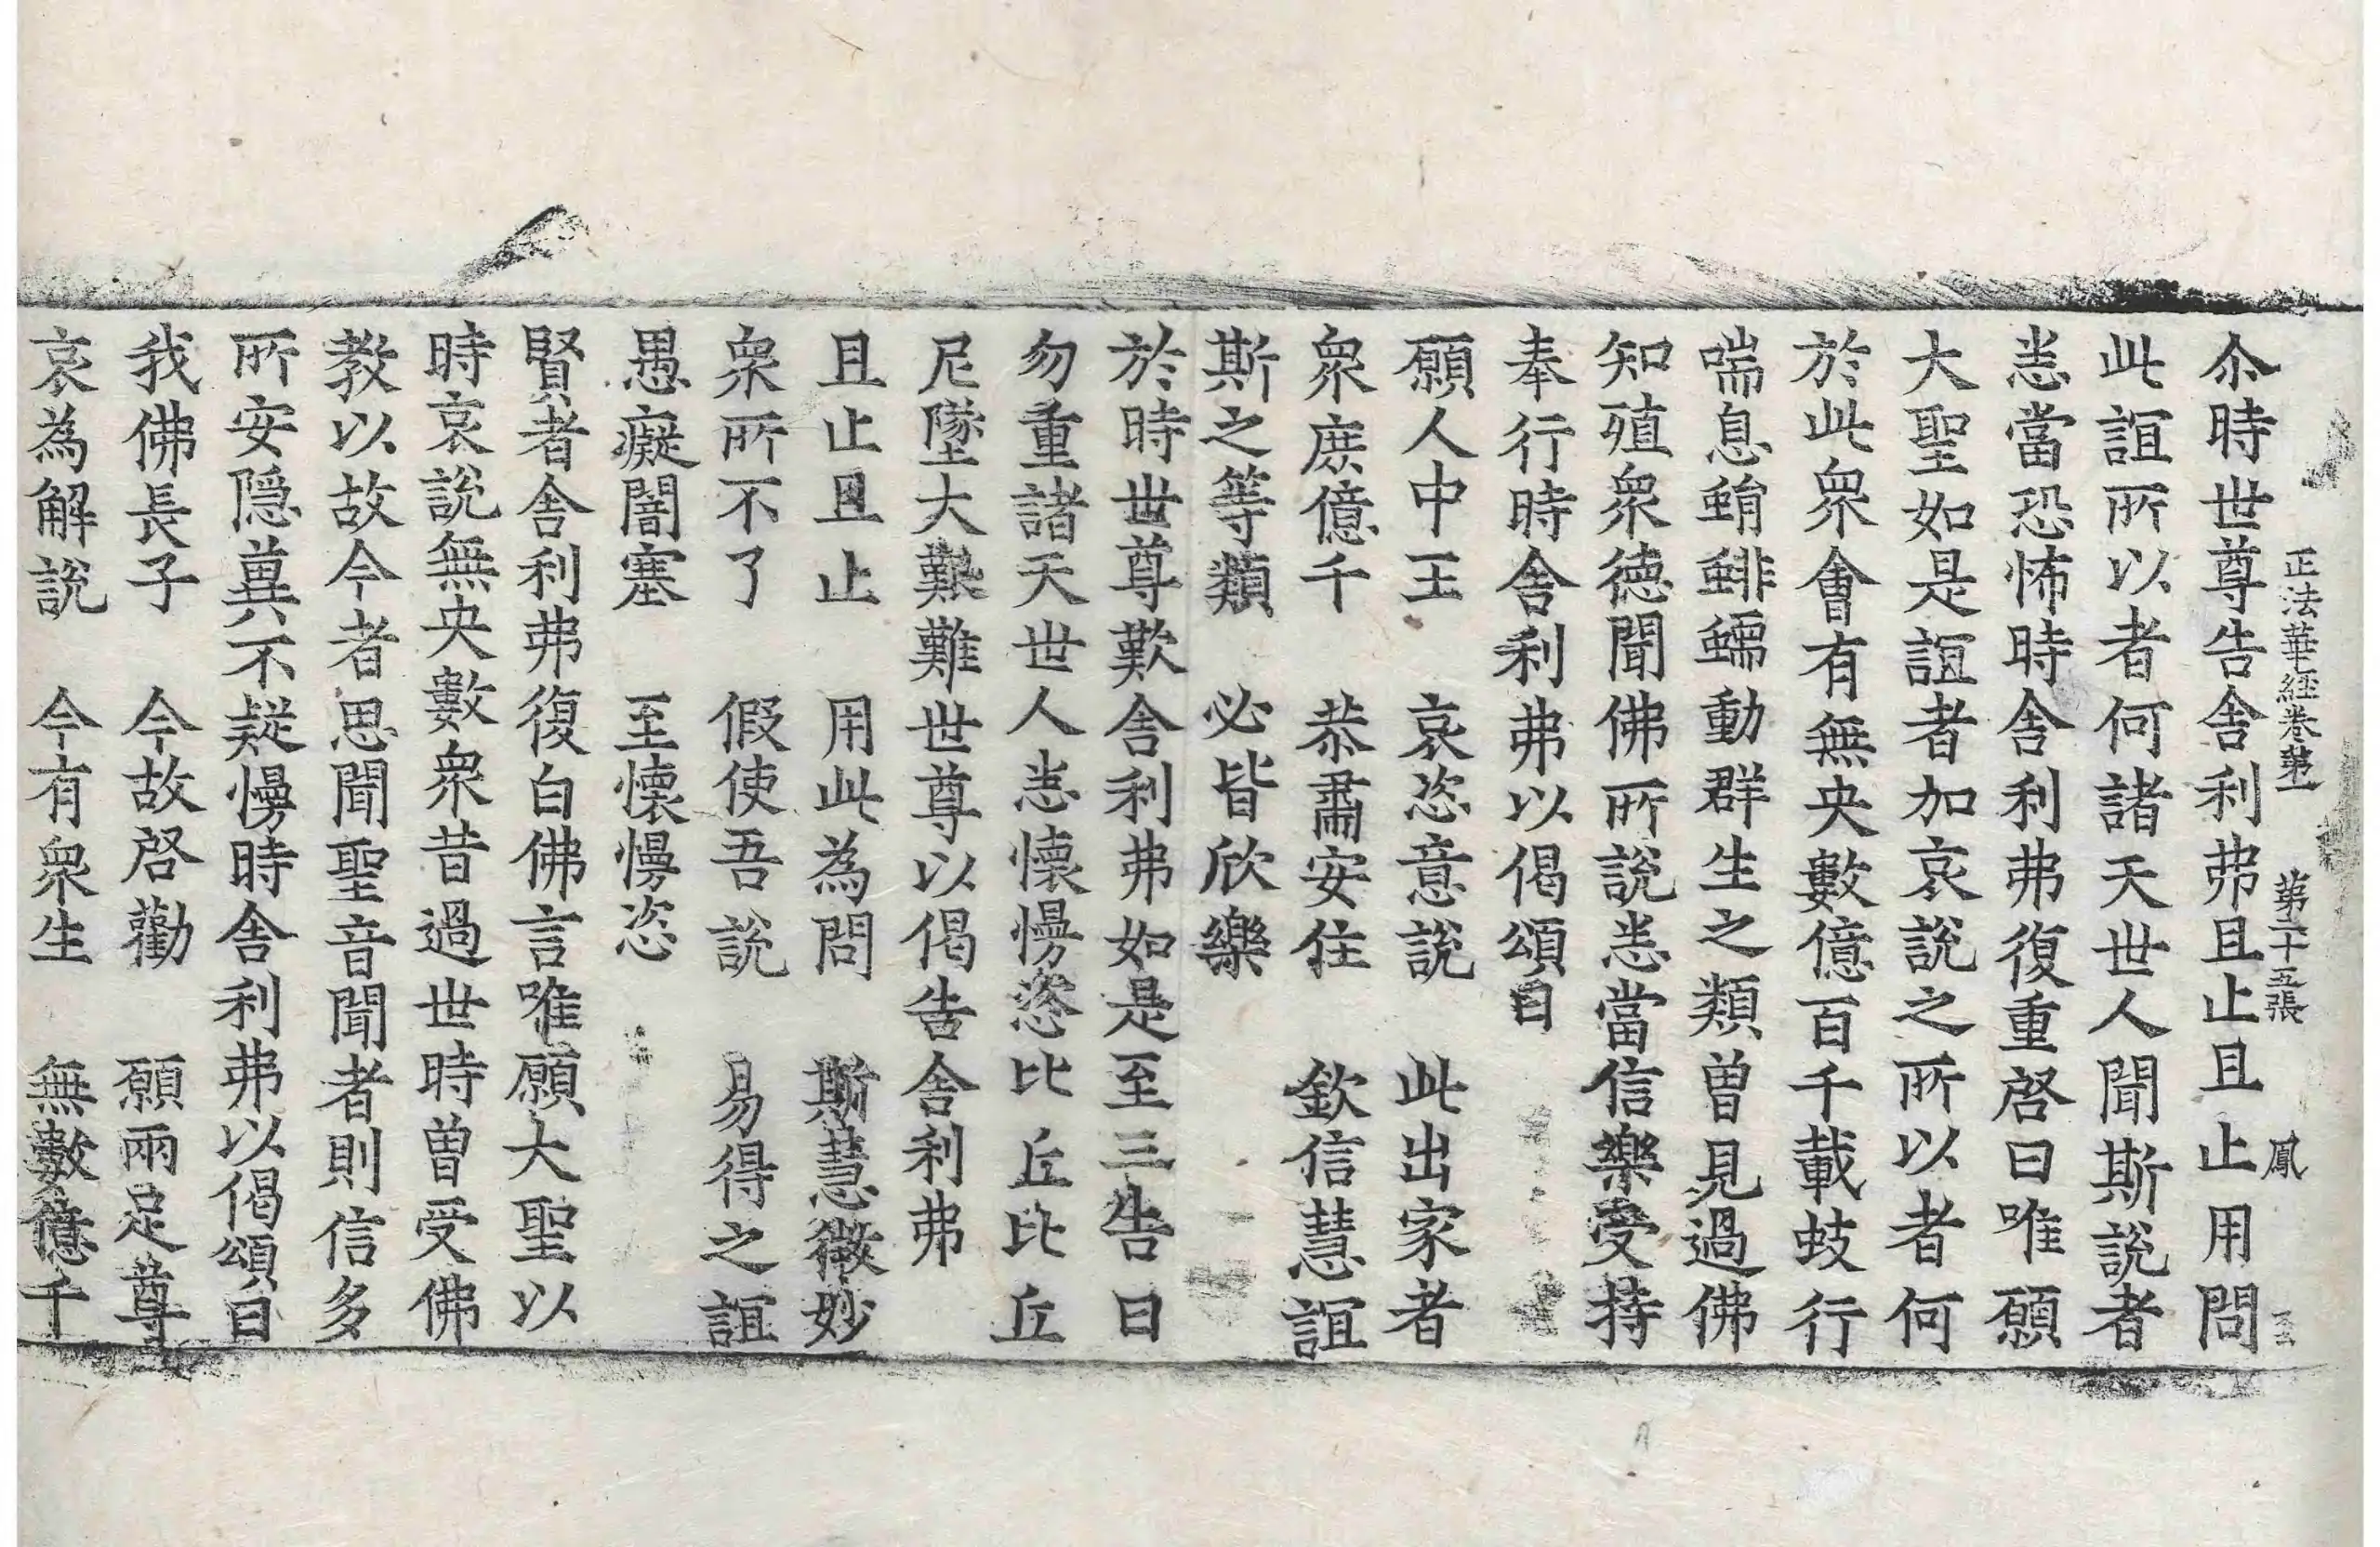 正法華経卷第一 第二十五張 鳳
尒時世尊告舎利弗且止且止用問
此誼所以者何諸天世人聞斯說者
恚當恐怖時舎利弗復重啓曰唯願
大聖如是誼者加哀說之所以者何
於此衆會有無央數億百千載蚑行
喘息蜎蜚蠕動群生之類曽見過佛
知殖衆德聞佛所說恚當信樂受持
奉行時舎利弗以偈頌曰
願人中王 哀恣意說 此出家者
衆庶億千 恭肅安住 欽信慧誼
斯之等類 必皆欣樂
於時世尊歎舎利弗如是至三告曰
勿重諸天世人恚懷慢恣比丘比丘
尼墜大艱難世尊以偈告舎利弗
且止且止 用此為問 斯慧微妙
衆所不了 假使吾說 易得之誼
愚癡闇塞 至懷慢恣
賢者舎利弗復白佛言唯願大聖以
時哀說無央數衆昔過世時曽受佛
教以故今者思聞聖音聞者則信多
所安隱兾不疑慢時舎利弗以偈頌曰
我佛長子 今故啓勸 願兩足尊
哀為解說 今有衆生 無數億千